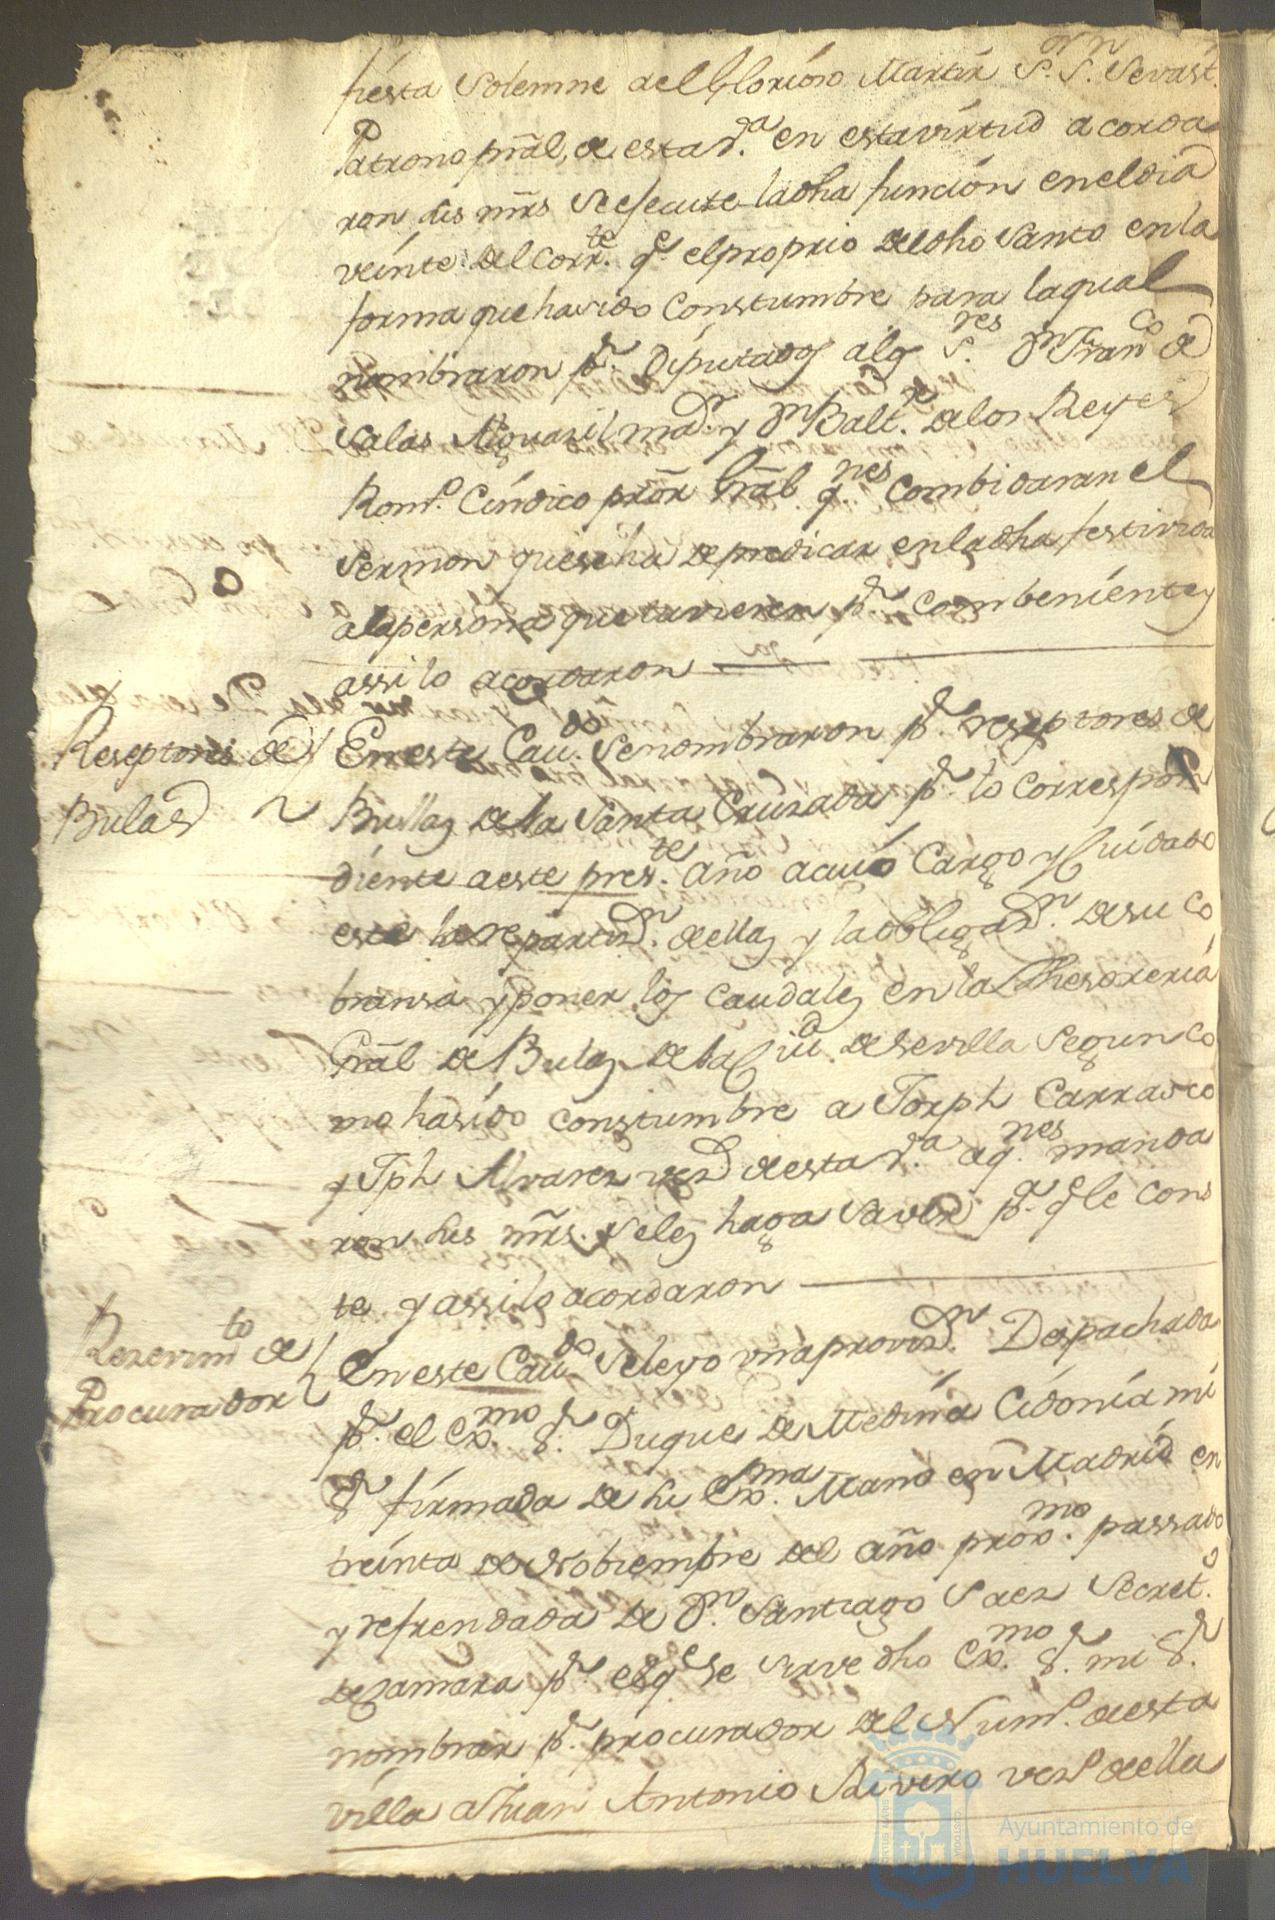 fiesta Solemne del Glorioso Martir Sr. Sn. Sevast.
Patrono pral, de esta Va. en esta virtud acorda
ron sus mrs se execute la dha funcion en el dia
veinte del Corrte. qe. el proprio del dho Santo en la
forma que ha sido Constumbre para la qual
nombraron pr. Diputados a los Sres. Dn Franco de
Salas Alguasil maor. y Dn Balte. de los Reyes
Romo. Cindico pror Gral qnes combidaran el
Sermon que se ha de predicar en la dha festivida
a la persona que tuvieren pr. combeniente y
assi lo acordaron
Reseptores de
Bulas
En este Cavdo. Se nombraron pr. reseptores de
Bullas de la Santa Cruzada pr. lo correspon
diente a este preste. año a cuio Cargo y Cuidado
este la repartizn. de ellas y la obligazn. de su co
bransa y poner los caudales en la Thesoreria
Gral de Bulas de la Ciud. de Sevilla Segun co
mo ha sido constumbre a Joseph Carrasco
y Jph Alvarez vezs de esta Va. a qnes manda
ron sus mrs. se les haga saver pa. qe le cons
te y assi lo acordaron
Rezevimto de
Procurador
En este Cavdo Se leyo una provizn. Despachada
pr. el Exmo Sr. Duque de Medina Cidonia mi
Sr firmada de su Exma. Mano en Madrid en
treinta de Nobiembre del año proxmo. passado
y refrendada de Dn. Santiago Saez Secreto.
de camara pr. el qe se sirve dho Exmo. Sr. mi Sr.
nombrar pr. procurador del Numo. de esta
villa a Juan Antonio Rivero vezo de ella
Ayuntamiento de
HUELVA